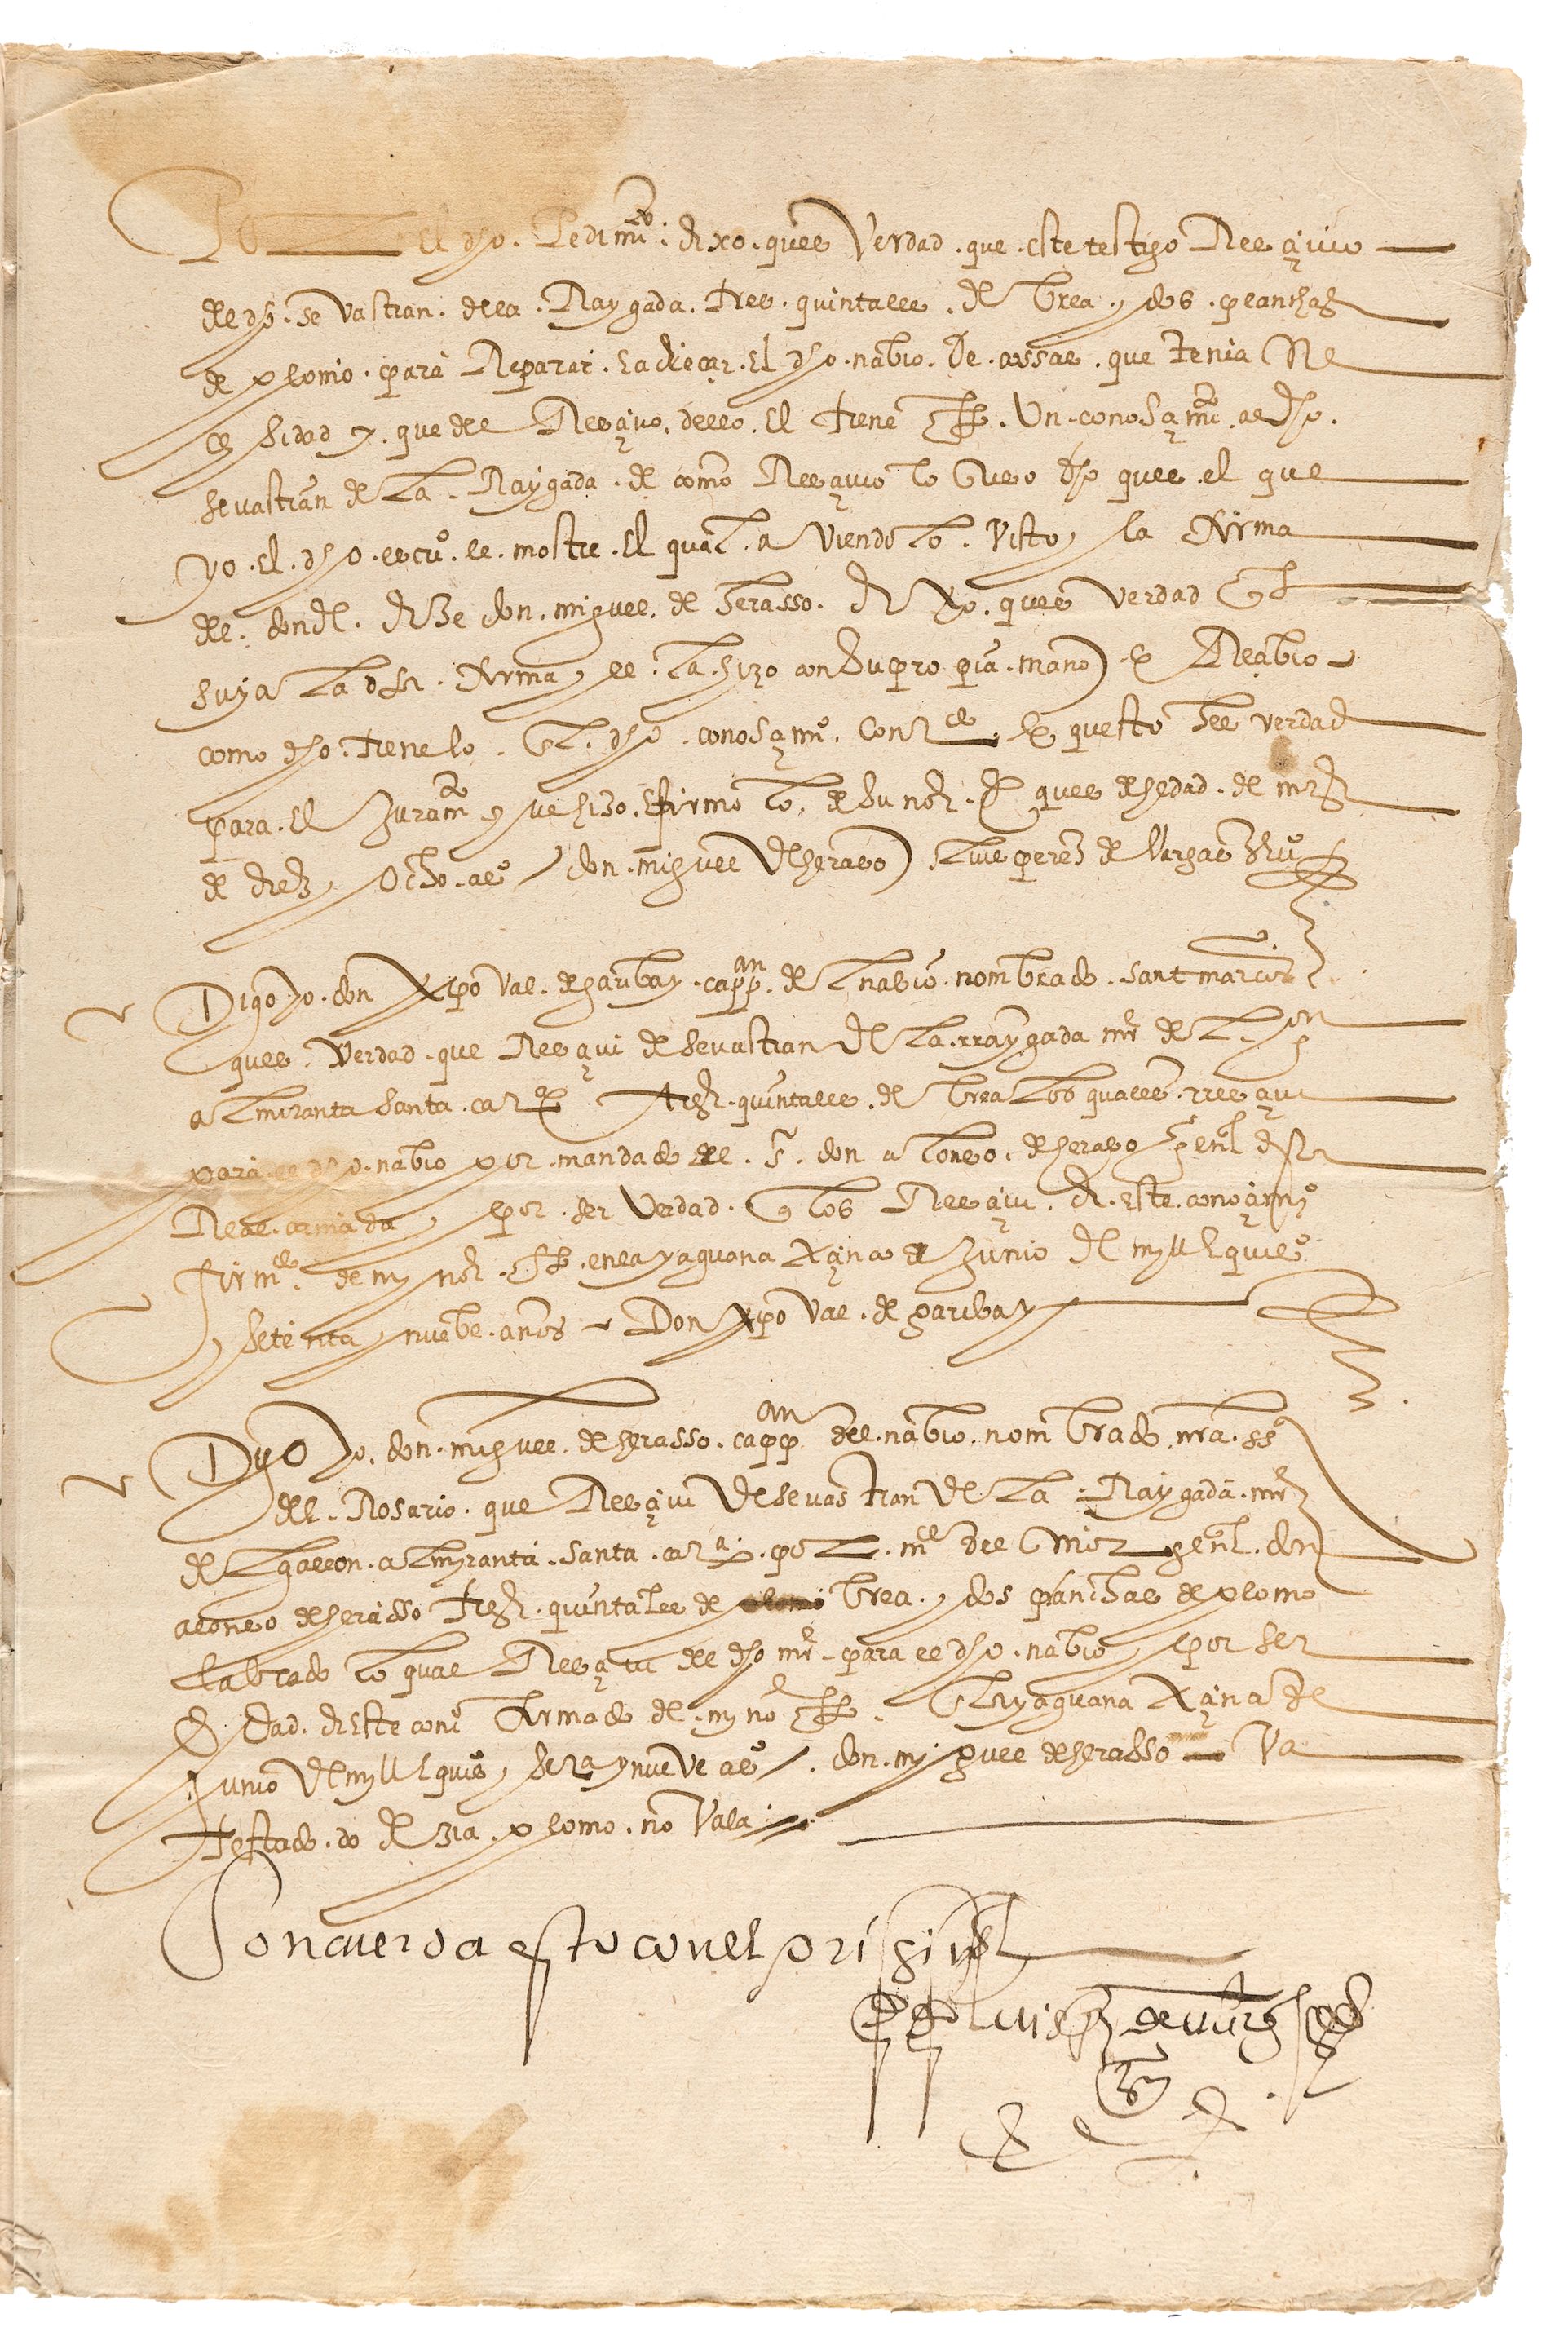 Po El dho. Pedimito. dixo. ques Verdad. que. este testigo Resçivio
del dho. se vastian. dela. Raygada. tres. quintales. de brea y dos. planchas
de plomo. para Reparar. El dho. nabio. De. cossas. que tenia Ne
cesidad y. que del Resçivo. dello. El tiene fho. Un. conosçimito. al dho.
sevastian de La. Raygada. de como Resçivio lo suso dho ques. el que
yo. El. dho. escrivo. le. mostre. El qual. a Viendo lo. Visto y la firma
del. donde. dize don. miguel. de Erasso. dixo. ques Verdad
suya La dha. firma y el. la. hizo con su pro pia. mano) e Resçibio
como dho. tiene lo. dho. conosçimio. Contdo. e questo Es verdad
para. El Juramto que hizo. E firmo lo. de Su nonbre. e ques de hedad. de mas
de diez y Ocho. aos / don. miguel de heraso) Luis perez de Vargas Escrivo
Digo yo. don Xpo Val. de garibay. cappan. del nabio. nombrado. sant marcos
ques. Verdad. que Resçivi de sevastian de La. rraygada me de L
almiranta Santa. cata tres. quintales. de brea los quales. rresçivi
para. el dho. nabio por. mandado del. Sr. don alonso. de heraso genl desta
Real. armada y por. ser Verdad. q los Resçivi. di. este. conoçimio
firmdo. de my nonbre. fho. en la yaguana a de Junio de myll quios
y setenta y nuebe. años - Don Xpo Val. de garibay
Dygo yo. don. miguel. de herasso. cappan del. nabio. nombrado. nra. sa
del. Rosario. que Resçivi de sevastian de La. Raygada. me
del galeon. almyranta. santa. cata. por mdo del señor genl. don
alonso de herasso tres. quintales de plomo brea. y dos planchas de plomo
labrado lo qual Resçivi del dho me. para el dho. nabio y por ser
Verdad. di Este conoo firmado de. my no fho. En la yaguana a de
Junio de myll quios y seta y nueve aos /. don. miguel de herasso - Va
testado. do dezia. plomo. no Vala
Concuerda esto con el original
Luis pz de vargas